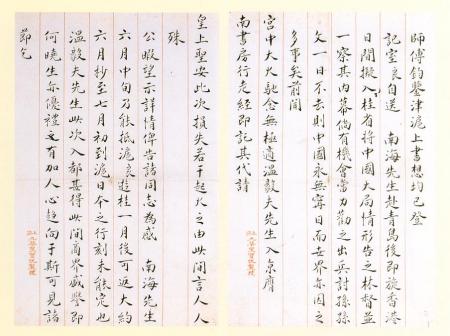 師傅鈞鑒津滬上書想均已登
記室良自送 南海先生赴青島後即旋香港
日間擬入桂省將中國大局情形告之林督並
一察其內幕倘有機會當力勸之出兵討孫孫
文一日不去則中國永無寧日而世界亦因之
多事矣前聞
宮中大火馳念無極適溫毅夫先生入京膺
南書房行走經即託其代請
皇上聖安此次損失若干起火之由此間言人人
殊
公暇望示詳情俾告諸同志為感 南海先生
六月中旬乃能抵滬良遊桂一月後可返大約
六月抄至七月初到滬日本之行刻未能定也
溫毅夫先生此次入都甚得此間商界咸譽即
何曉生亦優禮有加人心趨向于斯可見諸
節乞